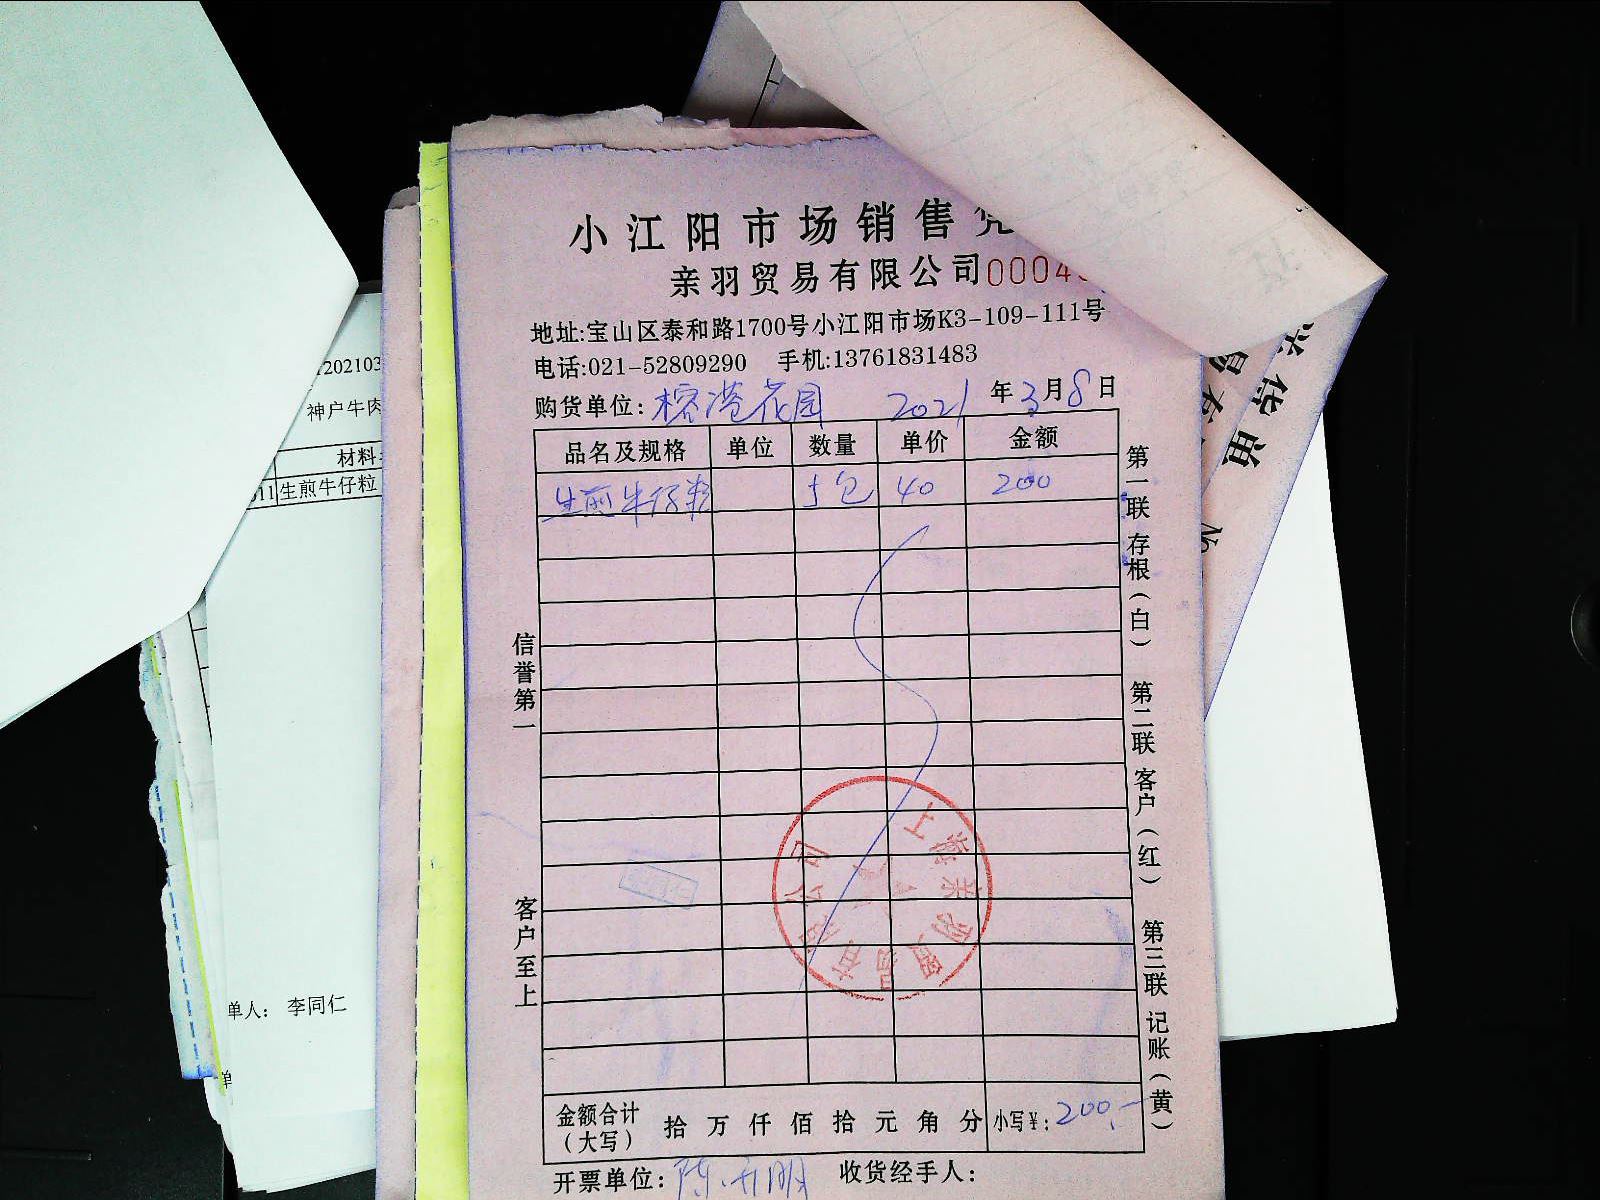 小江阳市场销售
亲羽贸易有限公司 0004
地址:宝山区泰和路1700号小江阳市场K3-109-111号
电话:021-52809290 手机:13761831483
购货单位: 榕港花园 2021 年 3 月 8 日
品名及规格 单位 数量 单价 金额
生煎牛仔粒 5包 40 200
金额合计(大写) 拾 万 仟 佰 拾 元 角 分 小写¥: 200.-
开票单位: 收货经手人:
信誉第一
客户至上
第一联 存根(白) 第二联 客户(红) 第三联 记账(黄)
202103
神户牛肉
材料
011 生煎牛仔粒
单人: 李同仁
单
传单
No